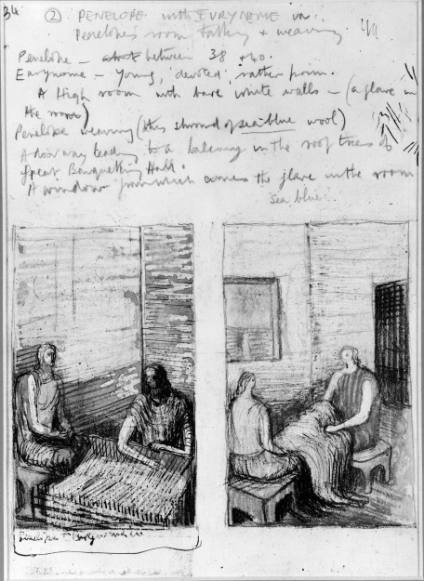 34
② PENELOPE with EURYNOME in
Penelope's room talking + weaving
Penelope — about between 38 + 40.
Eurynome — Young, 'devoted', rather prim.
A High room with bare white walls — (a glare in
the room)
Penelope weaving (the shroud of sea-blue wool)
A doorway leading to a balcony in the roof trees of
Great Banqueting Hall.
A window from which comes the glare in the room
sea blue
Penelope